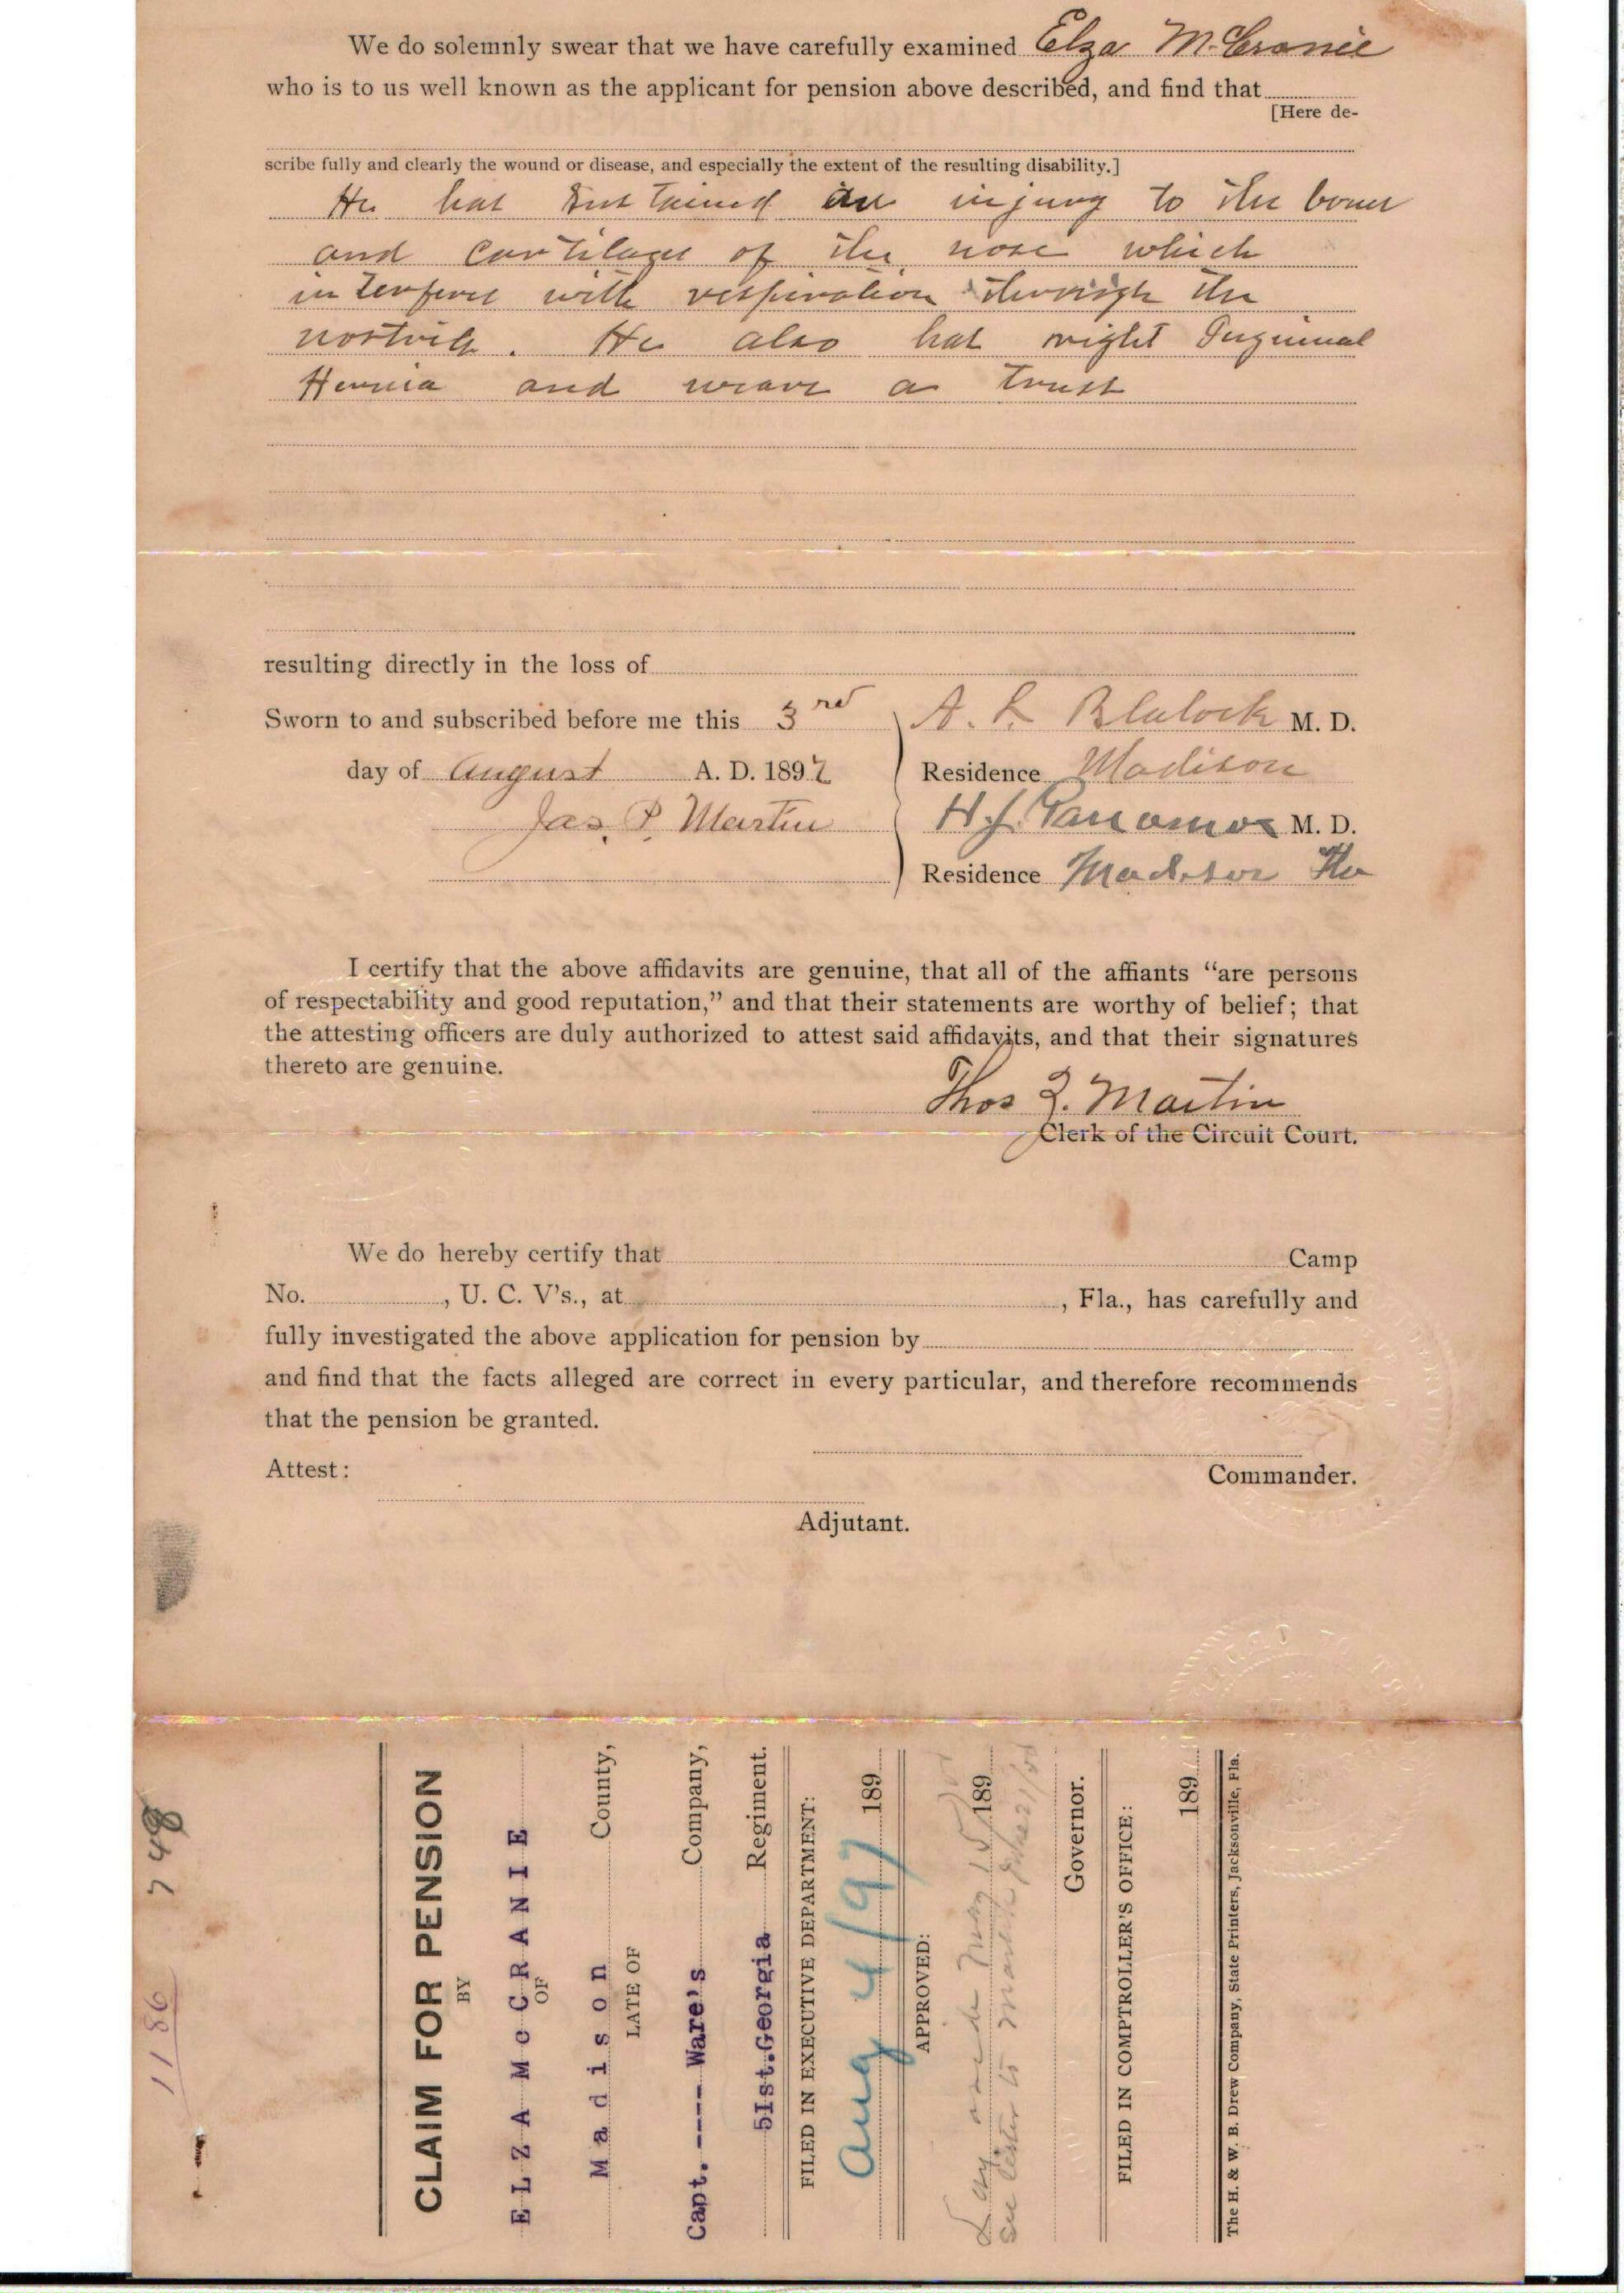 We do solemnly swear that we have carefully examined Elza McCranie
who is to us well known as the applicant for pension above described, and find that
[Here de-
scribe fully and clearly the wound or disease, and especially the extent of the resulting disability.]
He has sustained an injury to the bones
and cartilages of the nose which
interferes with respiration through the
nostrils. He also has right Inguinal
Hernia and wears a truss
resulting directly in the loss of
Sworn to and subscribed before me this 3rd
day of August A. D. 1897
Jas. P. Martin
A. L. Blalock M. D.
Residence Madison
H. J. M. D.
Residence Madison Fla
I certify that the above affidavits are genuine, that all of the affiants “are persons
of respectability and good reputation,” and that their statements are worthy of belief; that
the attesting officers are duly authorized to attest said affidavits, and that their signatures
thereto are genuine.
Thos Martin
Clerk of the Circuit Court.
We do hereby certify that Camp
No. , U. C. V's., at , Fla., has carefully and
fully investigated the above application for pension by
and find that the facts alleged are correct in every particular, and therefore recommends
that the pension be granted.
Commander.
Attest:
Adjutant.
7 48
1186
CLAIM FOR PENSION
BY
ELZA McCRANIE
OF
Madison County,
LATE OF
Capt. ---- Ware's Company,
51st. Georgia Regiment.
FILED IN EXECUTIVE DEPARTMENT:
Aug 4/97 189
APPROVED:
189
See letter to
Governor.
FILED IN COMPTROLLER'S OFFICE:
189
The H. & W. B. Drew Company, State Printers, Jacksonville, Fla.